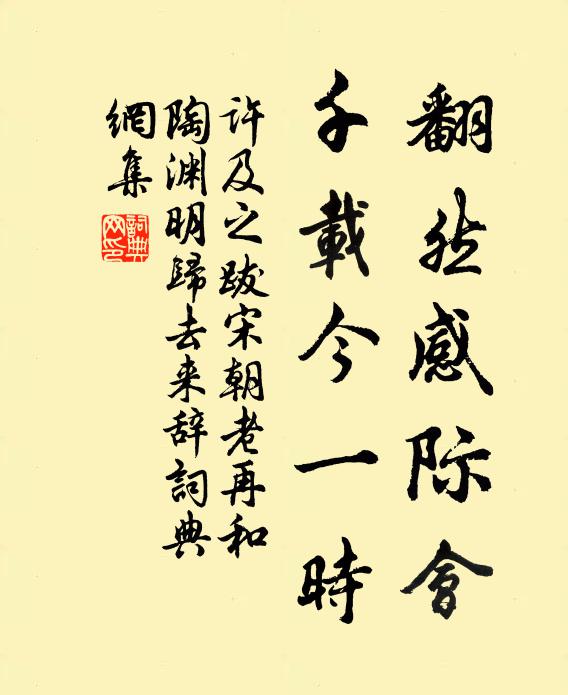 翻然感际會
千載今一時
许及之跋宋朝老再和
陶渊明歸去来辞詞典
網集
詞典
网印